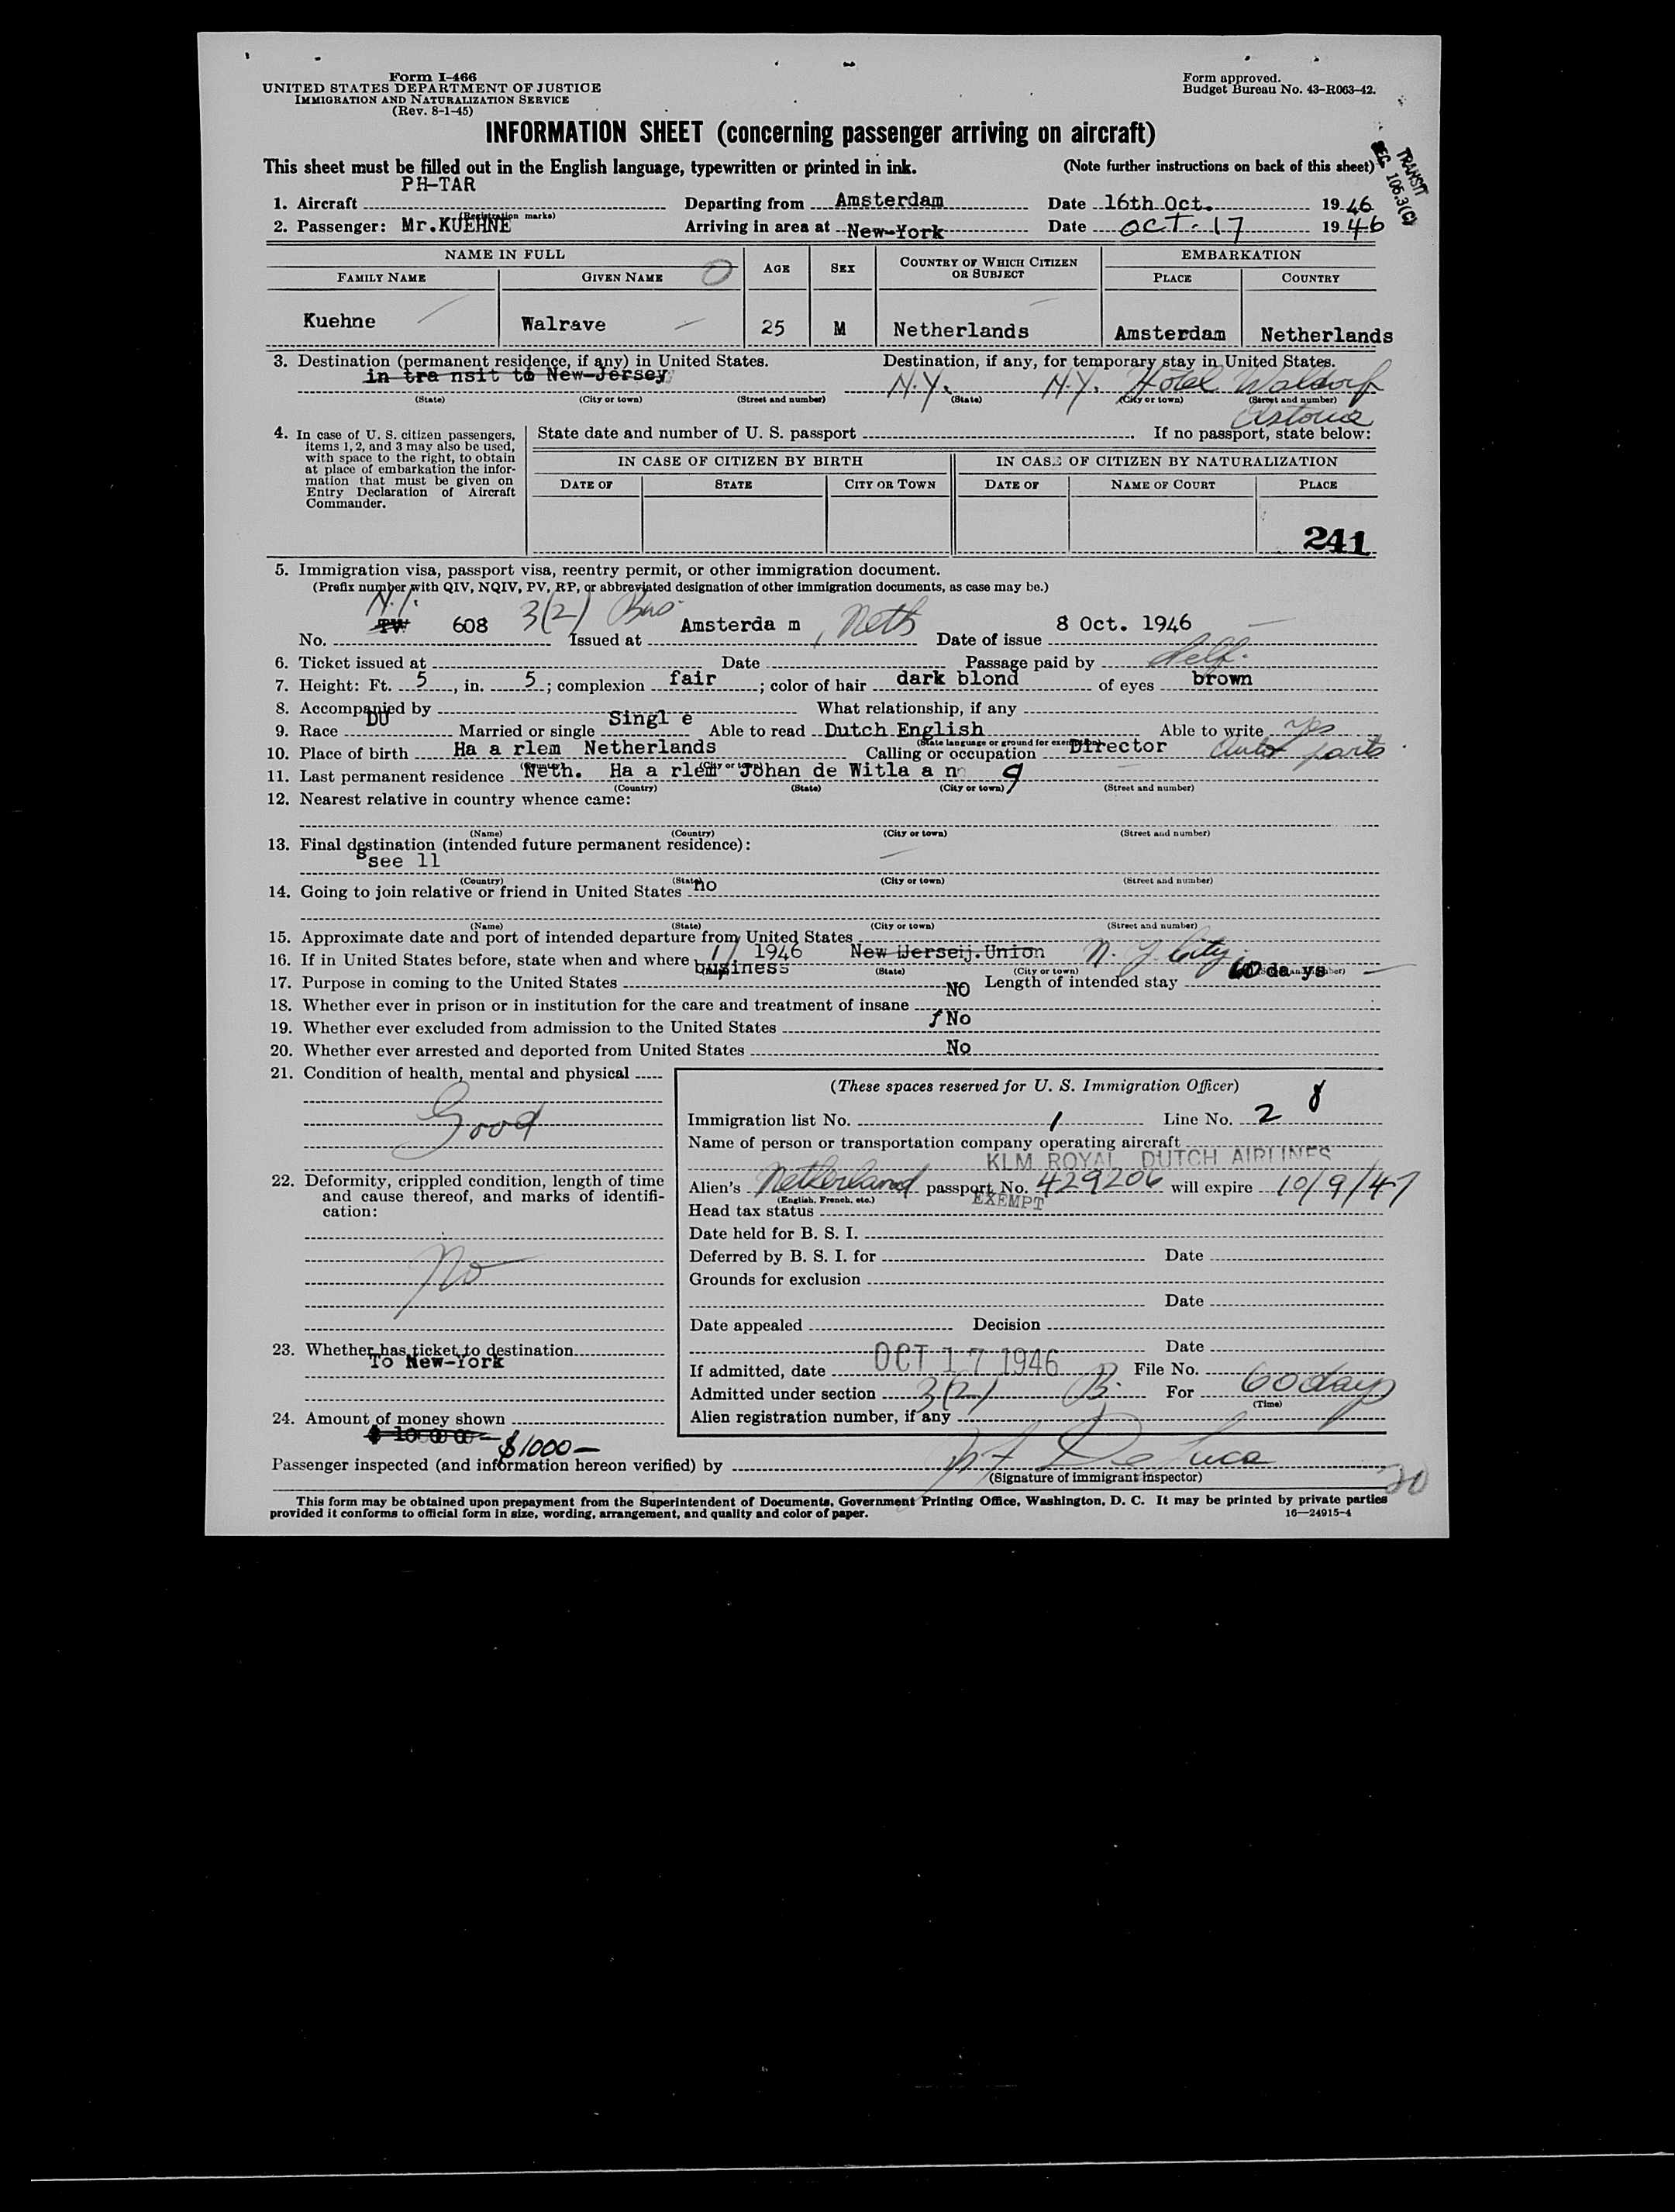 Form I-466
UNITED STATES DEPARTMENT OF JUSTICE
IMMIGRATION AND NATURALIZATION SERVICE
(Rev. 8-1-45)
Form approved.
Budget Bureau No. 43-R063-42.
INFORMATION SHEET (concerning passenger arriving on aircraft)
This sheet must be filled out in the English language, typewritten or printed in ink. (Note further instructions on back of this sheet)
TRANSIT
SEC 106.3(C)
PH-TAR
1. Aircraft Departing from Amsterdam Date 16th Oct. 1946
(Registration marks)
2. Passenger: Mr.KUEHNE Arriving in area at New-York Date OCT-17 1946
NAME IN FULL AGE SEX COUNTRY OF WHICH CITIZEN OR SUBJECT EMBARKATION
FAMILY NAME GIVEN NAME PLACE COUNTRY
Kuehne Walrave 25 M Netherlands Amsterdam Netherlands
3. Destination (permanent residence, if any) in United States. Destination, if any, for temporary stay in United States.
in tra nsit to New-Jersey N.Y. N.Y. Hotel Waldorf
(State) (City or town) (Street and number) (State) (City or town) (Street and number)
Astoria
4. In case of U. S. citizen passengers, items 1, 2, and 3 may also be used, with space to the right, to obtain at place of embarkation the information that must be given on Entry Declaration of Aircraft Commander.
State date and number of U. S. passport . If no passport, state below:
IN CASE OF CITIZEN BY BIRTH IN CASE OF CITIZEN BY NATURALIZATION
DATE OF STATE CITY OR TOWN DATE OF NAME OF COURT PLACE
241
5. Immigration visa, passport visa, reentry permit, or other immigration document.
(Prefix number with QIV, NQIV, PV, RP, or abbreviated designation of other immigration documents, as case may be.)
No. 608 3(2) Bus Issued at Amsterda m, Neth Date of issue 8 Oct. 1946
6. Ticket issued at Date Passage paid by Self.
7. Height: Ft. 5, in. 5; complexion fair; color of hair dark blond of eyes brown
8. Accompanied by What relationship, if any
9. Race DU Married or single Singl e Able to read Dutch English Able to write yes
(State language or ground for exemption)
10. Place of birth Ha a rlem Netherlands Calling or occupation Director Auto parts
(Country) (City or town)
11. Last permanent residence Neth. Ha a rlem Johan de Witla a n 9
(Country) (State) (City or town) (Street and number)
12. Nearest relative in country whence came:
(Name) (Country) (City or town) (Street and number)
13. Final destination (intended future permanent residence):
see 11
(Country) (State) (City or town) (Street and number)
14. Going to join relative or friend in United States no
(Name) (State) (City or town) (Street and number)
15. Approximate date and port of intended departure from United States
16. If in United States before, state when and where 1946 New Jerseij.Union N. Y. City
(State) (City or town) (Street and number)
17. Purpose in coming to the United States business Length of intended stay 60 da ys
18. Whether ever in prison or in institution for the care and treatment of insane NO
19. Whether ever excluded from admission to the United States No
20. Whether ever arrested and deported from United States No
21. Condition of health, mental and physical
Good
22. Deformity, crippled condition, length of time and cause thereof, and marks of identification:
No
23. Whether has ticket to destination
To New-York
24. Amount of money shown
$1000-
(These spaces reserved for U. S. Immigration Officer)
Immigration list No. 1 Line No. 2 8
Name of person or transportation company operating aircraft
KLM ROYAL DUTCH AIRLINES
Alien's Netherland passport No. 429206 will expire 10/9/47
(English, French, etc.)
Head tax status EXEMPT
Date held for B. S. I.
Deferred by B. S. I. for Date
Grounds for exclusion
Date
Date appealed Decision
Date
If admitted, date OCT 17 1946 File No.
Admitted under section 3(2) B. For 60 days
(Time)
Alien registration number, if any
Passenger inspected (and information hereon verified) by De Luca
(Signature of immigrant inspector)
20
This form may be obtained upon prepayment from the Superintendent of Documents, Government Printing Office, Washington, D. C. It may be printed by private parties
provided it conforms to official form in size, wording, arrangement, and quality and color of paper. 16—24915-4